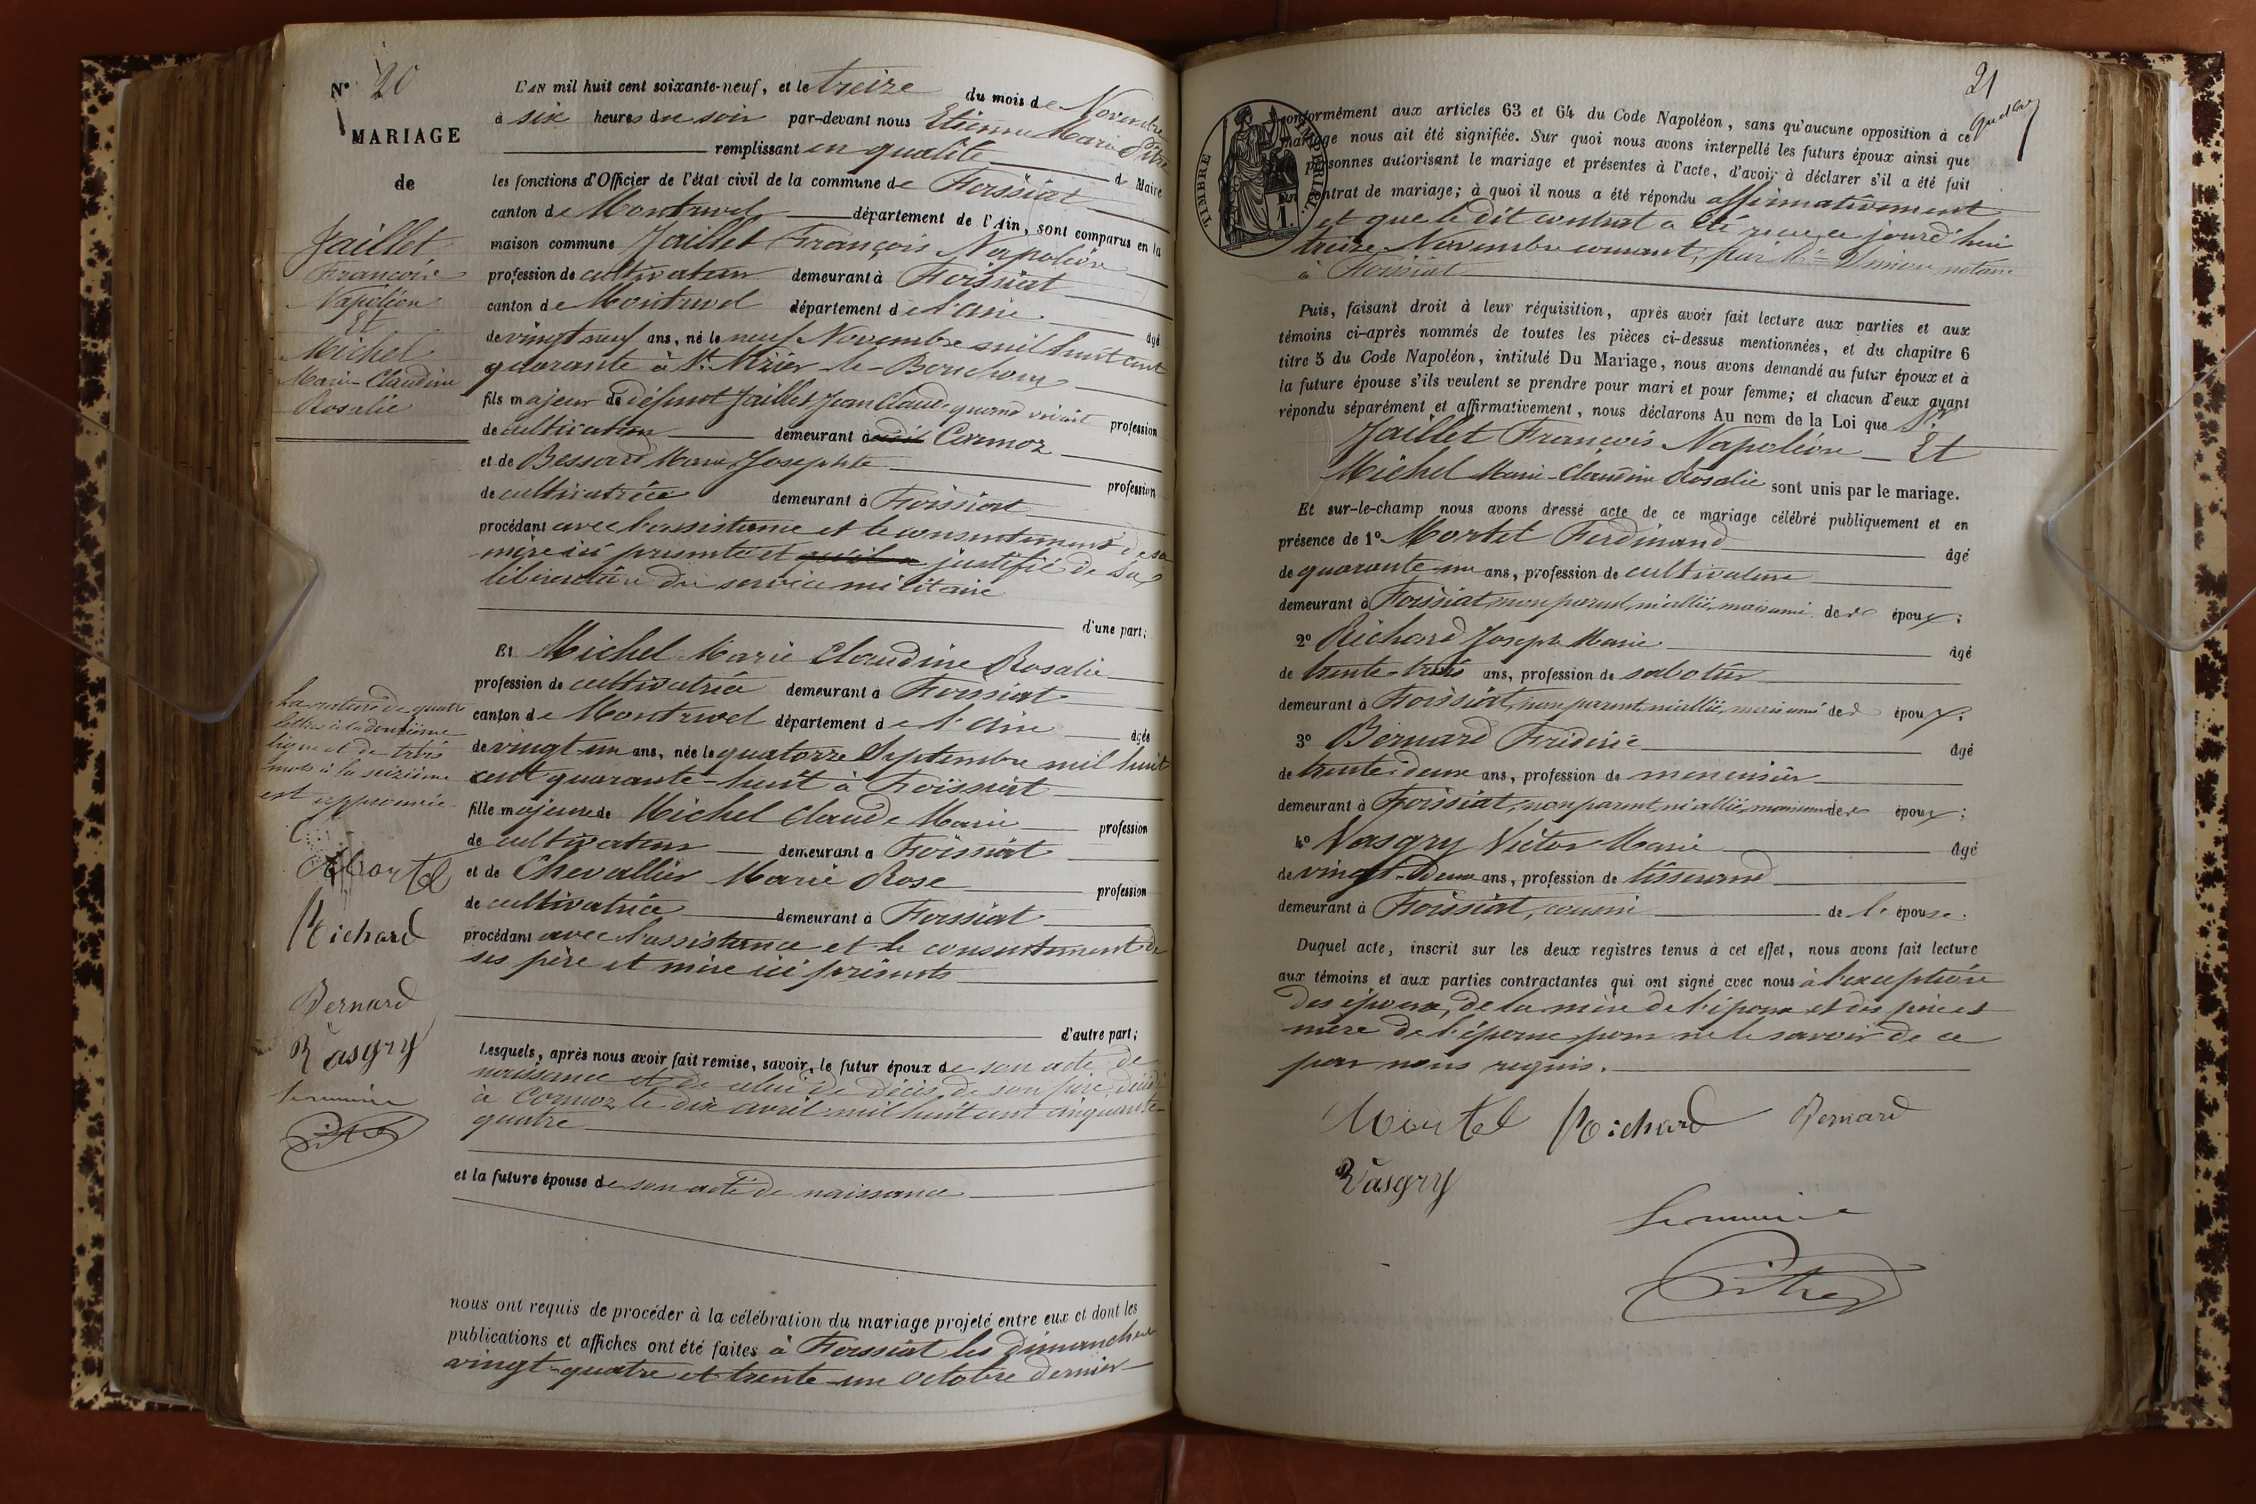 N° 20
MARIAGE
de
Jaillet
François
Napoléon
Et
Michel
Marie-Claudine
Rosalie
L'AN mil huit cent soixante-neuf, et le treize du mois de Novembre
à six heures du soir par-devant nous Etienne Marie Pitre
remplissant en qualité de Maire
les fonctions d'Officier de l'état civil de la commune de Foissiat
canton de Montrevel département de l'Ain, sont comparus en la
maison commune Jaillet François Napoléon
profession de cultivateur demeurant à Foissiat
canton de Montrevel département de l'ain âgé
de vingt neuf ans, né le neuf Novembre mil huit cent
quarante à St. Nizier-le-Bouchoux
fils majeur de défunt Jaillet Jean Claude quand vivait profession
de cultivateur demeurant à Cormoz
et de Bessard Marie Josephte profession
de cultivatrice demeurant à Foissiat
procédant avec l'assistance et le consentement de sa
mère ici présente et qu'il a justifié de sa
libération du service militaire
d'une part;
Et Michel Marie Claudine Rosalie
profession de cultivatrice demeurant à Foissiat
canton de Montrevel département de l'ain âgée
de vingt-un ans, née le quatorze Septembre mil huit
cent quarante-huit à Foissiat
fille majeure de Michel Claude Marie profession
de cultivateur demeurant à Foissiat
et de Chevallier Marie Rose profession
de cultivatrice demeurant à Foissiat
procédant avec l'assistance et le consentement de
ses père et mère ici présents
d'autre part;
Lesquels, après nous avoir fait remise, savoir, le futur époux de son acte de
naissance et de celui de décès de son père, décédé
à Cormoz le dix avril mil huit cent cinquante-
quatre
et la future épouse de son acte de naissance
nous ont requis de procéder à la célébration du mariage projeté entre eux et dont les
publications et affiches ont été faites à Foissiat les dimanches
vingt-quatre et trente-un octobre dernier
La rature de quatre
lettres à la douzième
ligne et de trois
mots à la seizième
est approuvée
Mortel
Richard
Bernard
Vasgry
Le maire
Pitre
21
TIMBRE IMPÉRIAL
conformément aux articles 63 et 64 du Code Napoléon, sans qu'aucune opposition à ce
mariage nous ait été signifiée. Sur quoi nous avons interpellé les futurs époux ainsi que
personnes autorisant le mariage et présentes à l'acte, d'avoir à déclarer s'il a été fait
contrat de mariage; à quoi il nous a été répondu affirmativement
et que le dit contrat a été reçu ce jourd'hui
treize Novembre courant, par notaire
à Foissiat
Puis, faisant droit à leur réquisition, après avoir fait lecture aux parties et aux
témoins ci-après nommés de toutes les pièces ci-dessus mentionnées, et du chapitre 6
titre 5 du Code Napoléon, intitulé Du Mariage, nous avons demandé au futur époux et à
la future épouse s'ils veulent se prendre pour mari et pour femme; et chacun d'eux ayant
répondu séparément et affirmativement, nous déclarons Au nom de la Loi que Sr.
Jaillet François Napoléon Et
Michel Marie-Claudine Rosalie sont unis par le mariage.
Et sur-le-champ nous avons dressé acte de ce mariage célébré publiquement et en
présence de 1° Mortel Ferdinand âgé
de quarante-un ans, profession de cultivateur
demeurant à Foissiat, non parent, ni allié, mais ami des époux;
2° Richard Joseph Marie âgé
de trente-trois ans, profession de sabotier
demeurant à Foissiat, non parent, ni allié, mais ami des époux;
3° Bernard Fréderic âgé
de trente-deux ans, profession de menuisier
demeurant à Foissiat, non parent, ni allié, mais ami des époux;
4° Vasgry Victor Marie âgé
de vingt-deux ans, profession de tisserand
demeurant à Foissiat, cousin de l'épouse.
Duquel acte, inscrit sur les deux registres tenus à cet effet, nous avons fait lecture
aux témoins et aux parties contractantes qui ont signé avec nous à l'exception
des époux, de la mère de l'époux et des père et
mère de l'épouse pour ne le savoir de ce
par nous requis.
Mortel Richard Bernard
Vasgry
Le maire
Pitre